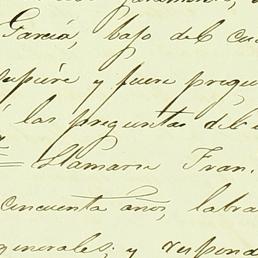 García, bajo del cu
supiere y fuere pregu
á las preguntas del
Llamarse Fran.
cincuenta años, labra
generales; y respond